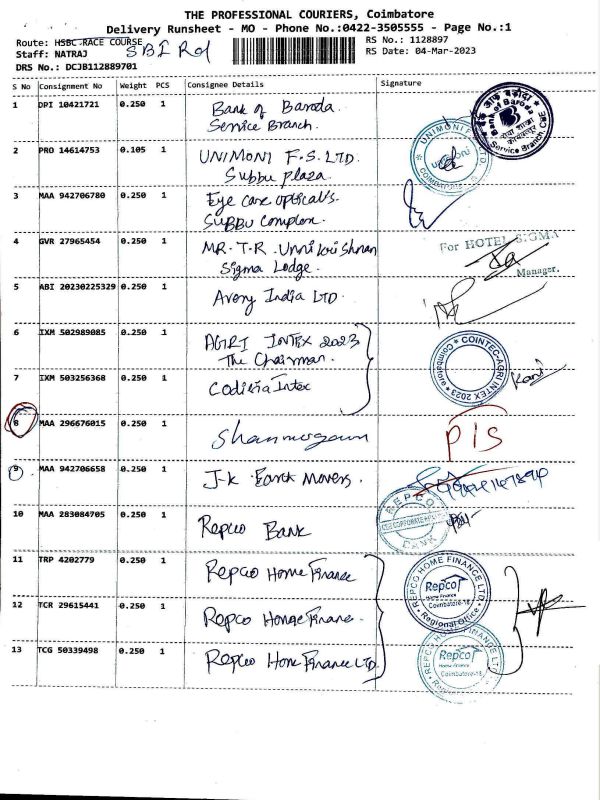 THE PROFESSIONAL COURIERS, Coimbatore
Delivery Runsheet - MO - Phone No.:0422-3505555 - Page No.:1
Route: HSBC RACE COURSE
SBI Rd
RS No.: 1128897
Staff: NATRAJ
RS Date: 04-Mar-2023
DRS No.: DCJB112889701
S No Consignment No Weight PCS Consignee Details Signature
1 DPI 10421721 0.250 1 Bank of Baroda.
Service Branch.
Bank of Baroda
Service Branch, CBE
2 PRO 14614753 0.105 1 UNIMONI F.S. LTD.
Subbu plaza.
UNIMONI
unimoni
COIMBATORE
3 MAA 942706780 0.250 1 Eye care optical's.
SUBBU Complex.
4 GVR 27965454 0.250 1 MR. T.R. Unnikrishnan
Sigma Lodge.
For HOTEL SIGMA
Manager.
5 ABI 20230225329 0.250 1 Avery India LTD.
6 IXM 502989085 0.250 1 AGRI INTEX 2023
The Chairman.
COINTEC-AGRI INTEX 2023
Coimbatore
7 IXM 503256368 0.250 1 Codissia Intex
Rani
8 MAA 296676015 0.250 1 Shanmugam
P/S
9 MAA 942706658 0.250 1 J-K Earth Movers.
10 MAA 283084705 0.250 1 Repco Bank
REPCO
BANK
11 TRP 4202779 0.250 1 Repco Home Finance
REPCO HOME FINANCE LTD
Repco
Home Finance
Coimbatore-18
Regional Office
12 TCR 29615441 0.250 1 Repco Home Finane.
13 TCG 50339498 0.250 1 Repco Home Finance LTD
REPCO HOME FINANCE LTD
Repco
Home Finance
Coimbatore-18